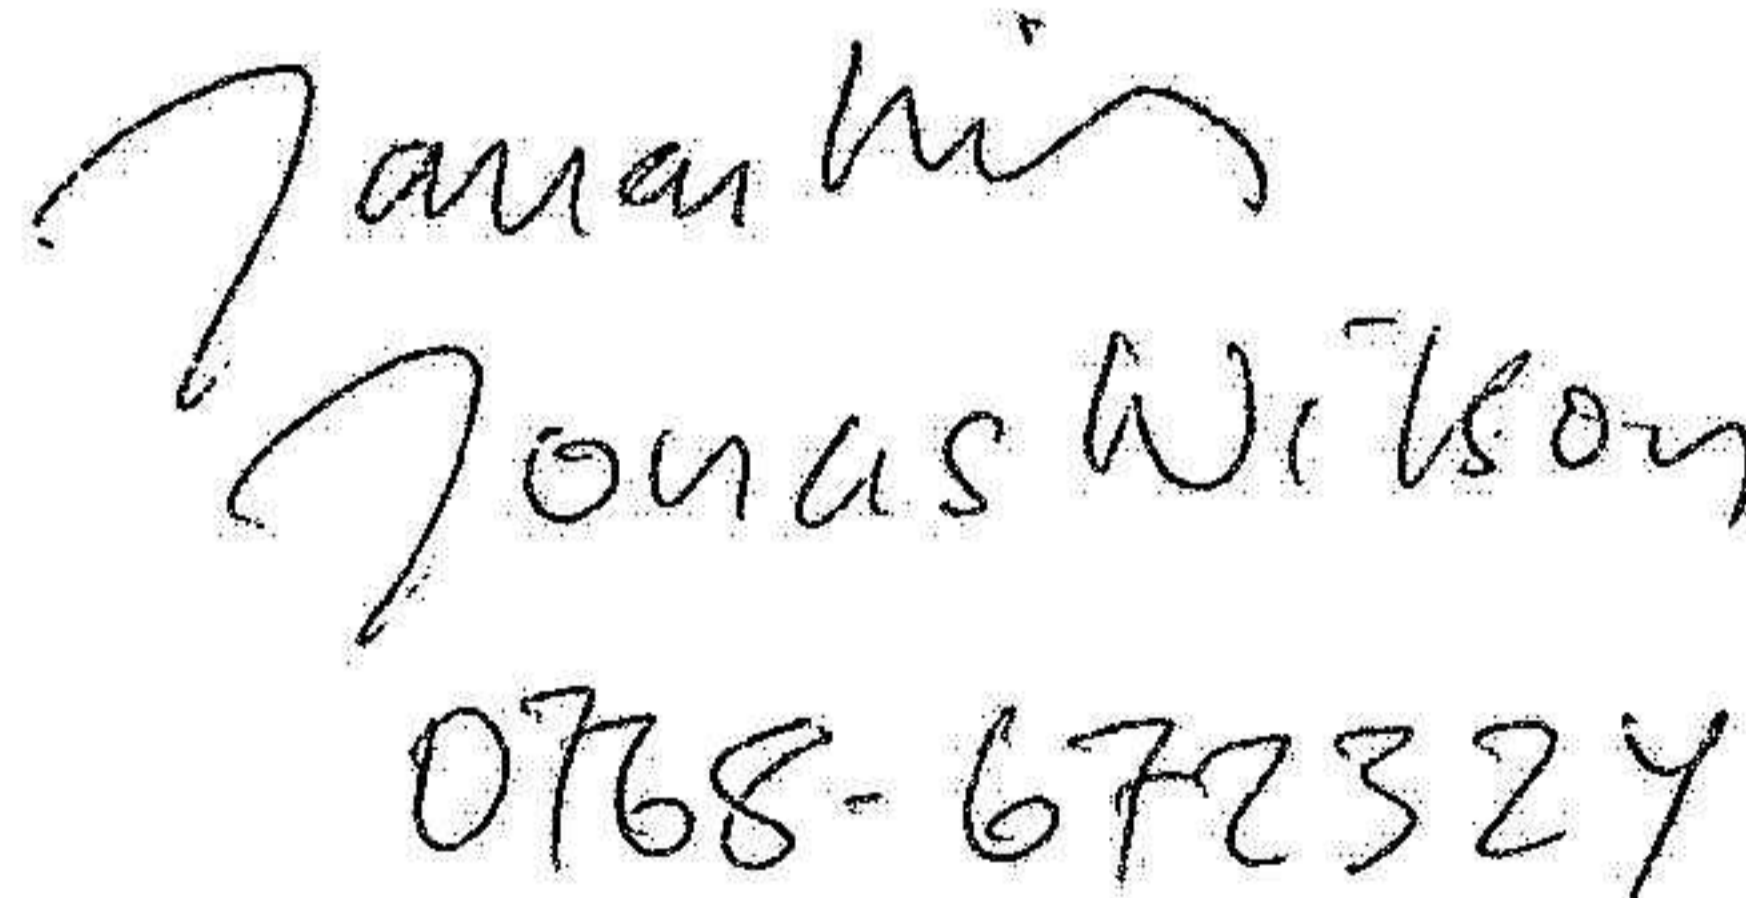 Jonas Wilson
0768-672324